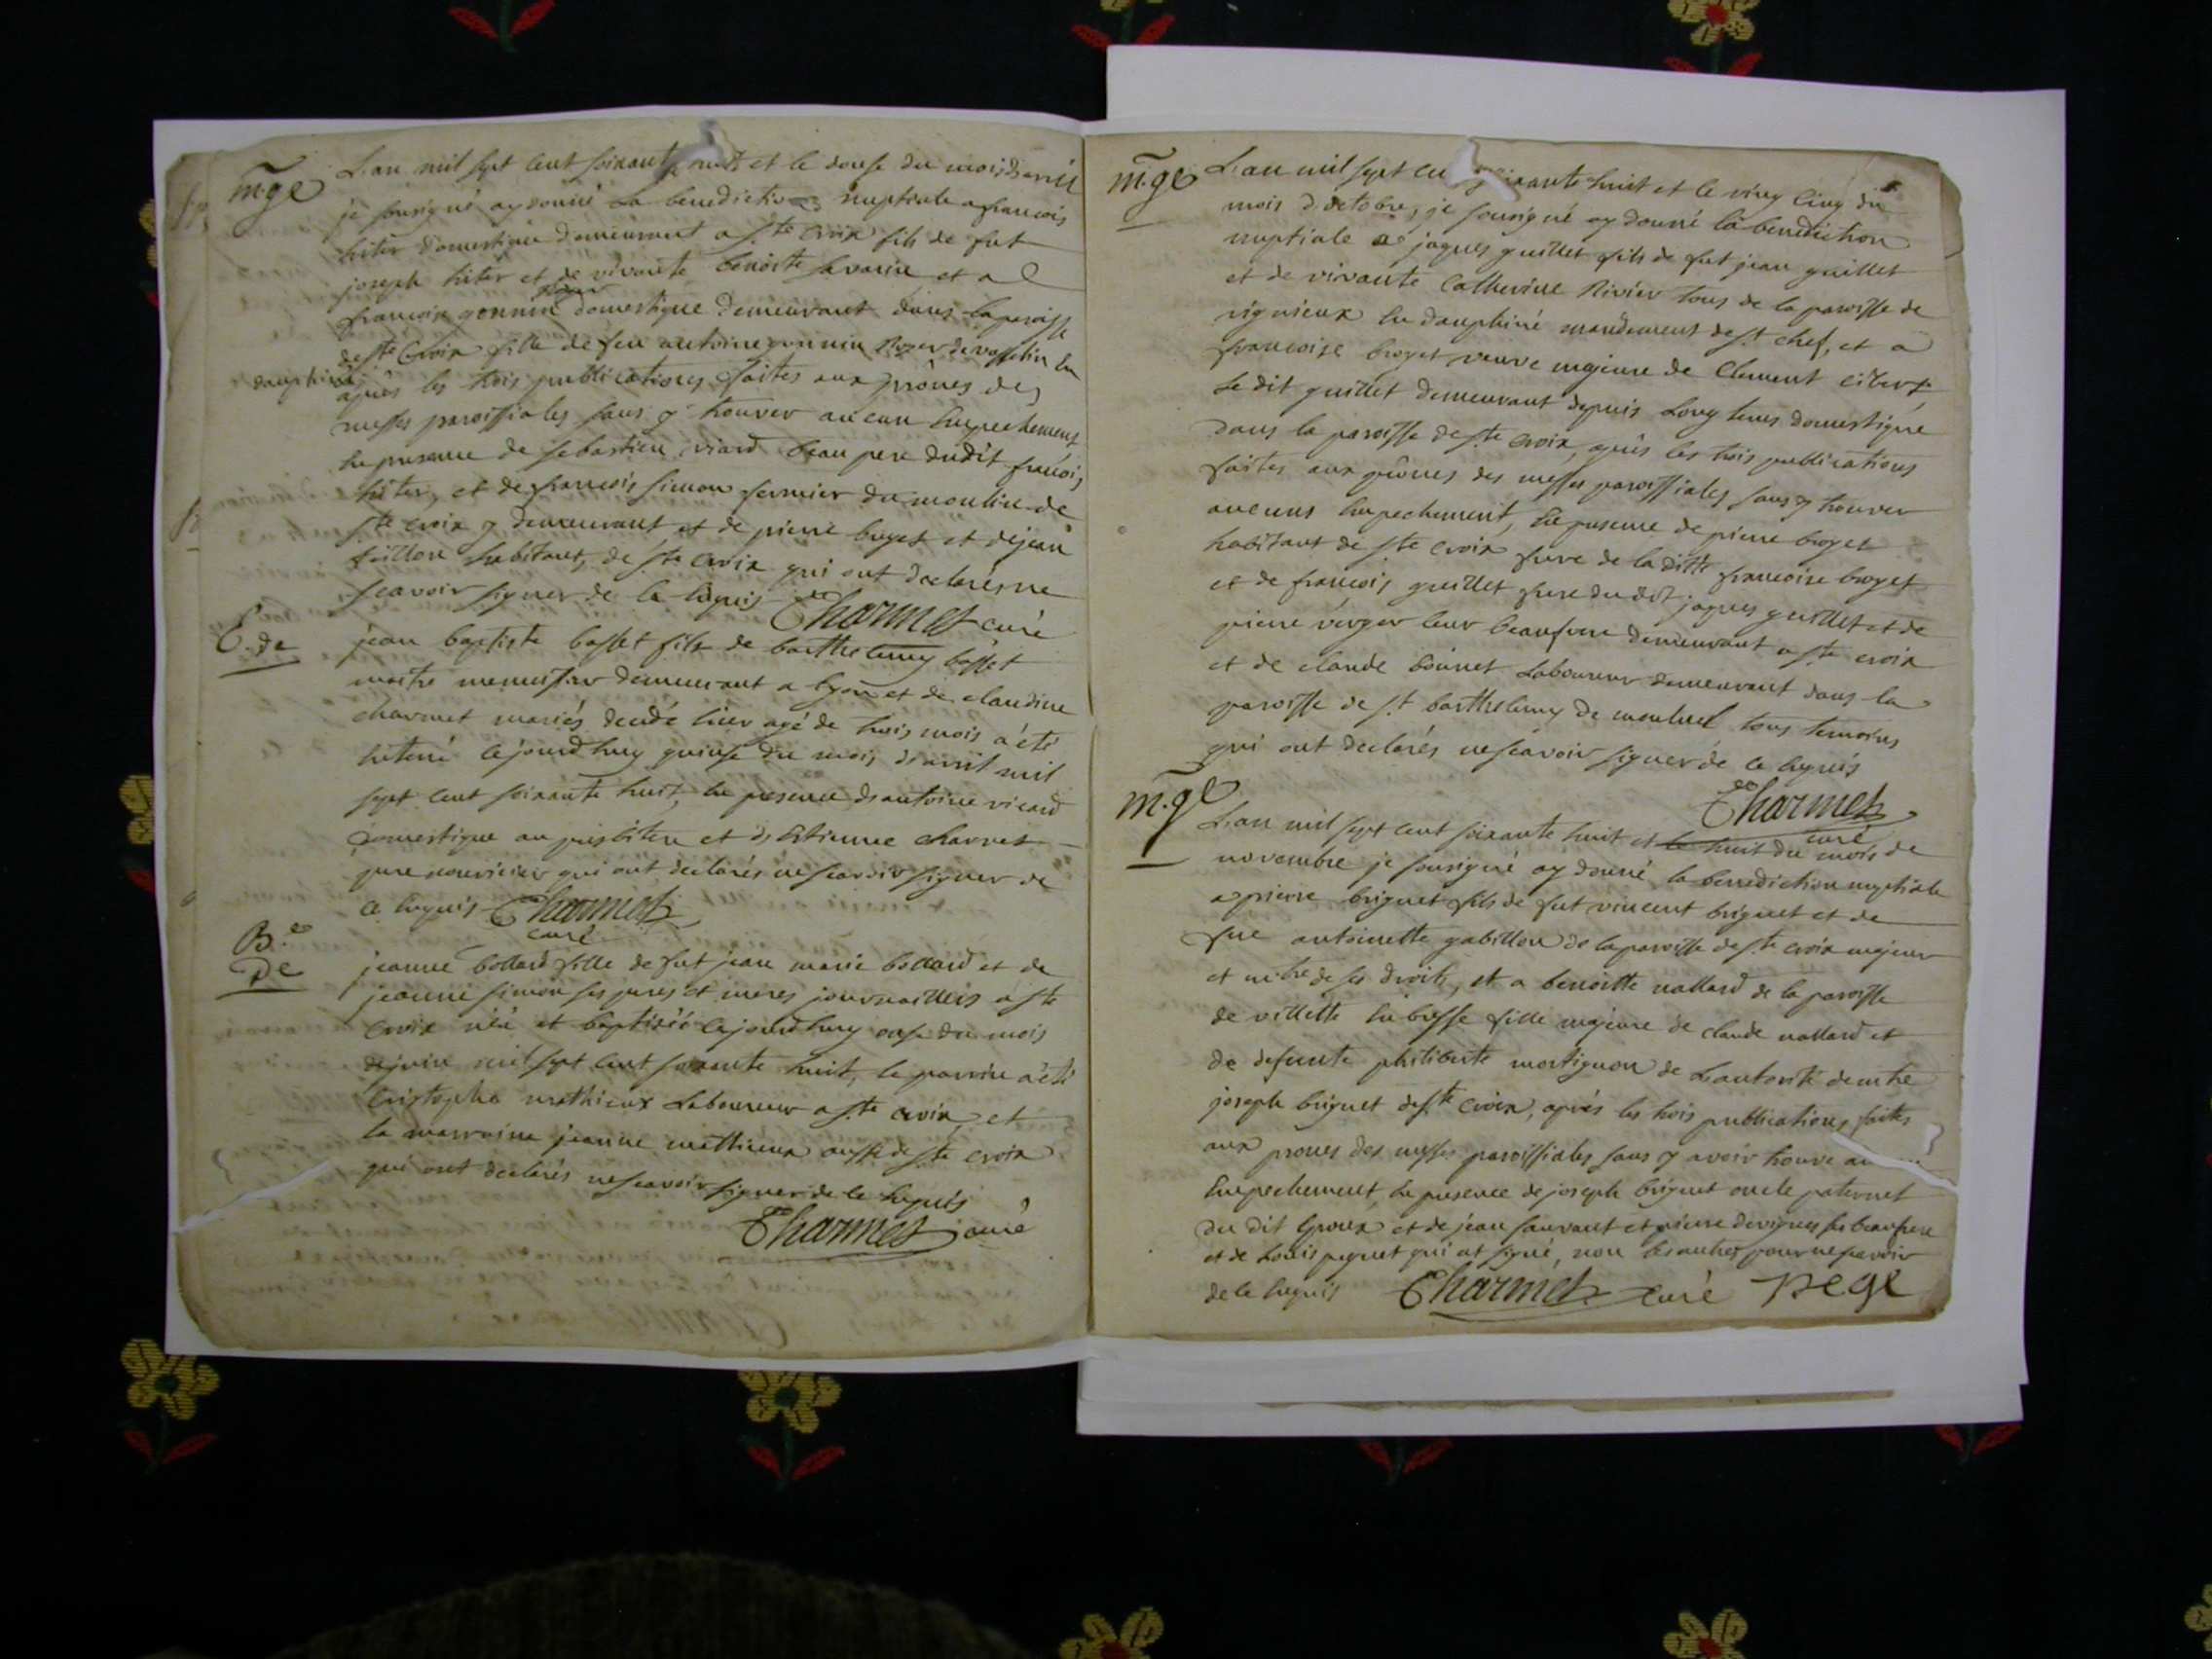 m.ge L'an mil sept cent soixante huit et le douse du mois d'avril
je sousigné ay donné la benediction nuptiale a francois
hiter domestique demeurant a ste croix fils de fut
joseph hiter et de vivante benoite savarin et a
francoise gonnin domestique demeurant dans la paroisse
de ste croix fille de feu antoine gonnin de vasselin en
dauphiné apres les trois publications faites aux prônes des
messes paroissiales sans y trouver aucun empechement
en presence de sebastien viard beau pere dudit francois
hiter, et de francois simon fermier du moulin de
ste croix y demeurant et de pierre buget et de jean
habitants de ste croix qui ont declarés ne
scavoir signer de ce enquis Charmet curé
E. de jean baptiste basset fils de barthelemy basset
maitre menuisier demeurant a lyon et de claudine
charmet mariés decedé hier agé de trois mois a été
enterré ce jourd'huy quinse du mois d'avril mil
sept cent soixante huit, en presence d'antoine vicard
domestique au presbitere et d'estienne charvet
pere nouricier qui ont declarés ne scavoir signer de
ce enquis Charmet
curé
B.e
De jeanne bollard fille de fut jean marie bollard et de
jeanne simon ses peres et meres journailleis a ste
croix née et baptisée ce jourd'huy onse du mois
de juin mil sept cent soixante huit, le parrin a été
Cristophe mathieux laboureur a ste croix, et
la marraine jeanne mathieux aussi de ste croix
qui ont declarés ne scavoir signer de ce enquis
Charmet curé
m.ge L'an mil sept cen soixante huit et le ving cinq du
mois d'octobre, je sousigné ay donné la benediction
nuptiale a jaques guillet fils de fut jean guillet
et de vivante Catherine Rivier tous de la paroisse de
vignieux en dauphiné mandement de st chef, et a
francoise broyet veuve majeure de Clement
le dit guillet demeurant depuis long tems domestique
dans la paroisse de ste croix, après les trois publications
faites aux prônes des messes paroissiales sans y trouver
aucuns empechement, en presence de pierre broyet
habitant de ste croix frere de la ditte francoise broyet
et de francois guillet frere du dit jaques guillet et de
pierre verger leur beaufrere demeurant a ste croix
et de claude bonnet laboureur demeurant dans la
paroisse de st barthelemy de montluel tous temoins
qui ont declarés ne scavoir signer de ce enquis
Charmet
curé
m.ge L'an mil sept cent soixante huit et le huit du mois de
novembre je sousigné ay donné la benediction nuptiale
a pierre briguet fils de fut vincent briguet et de
fue antoinette gabillon de la paroisse de ste croix majeur
et mtre de ses droits, et a benoitte vallard de la paroisse
de villette en bresse fille majeure de claude vallard et
de defunte philiberte mortignon de l'autorité de mtre
joseph briguet de ste croix, après les trois publications faites
aux prones des messes paroissiales sans y avoir trouvé au
empechement, en presence de joseph briguet oncle paternel
du dit Epoux et de jean sauvant et pierre devignes ses beaufrere
et de Louis peguet qui at signé, non les autres pour ne scavoir
de ce enquis Charmet curé